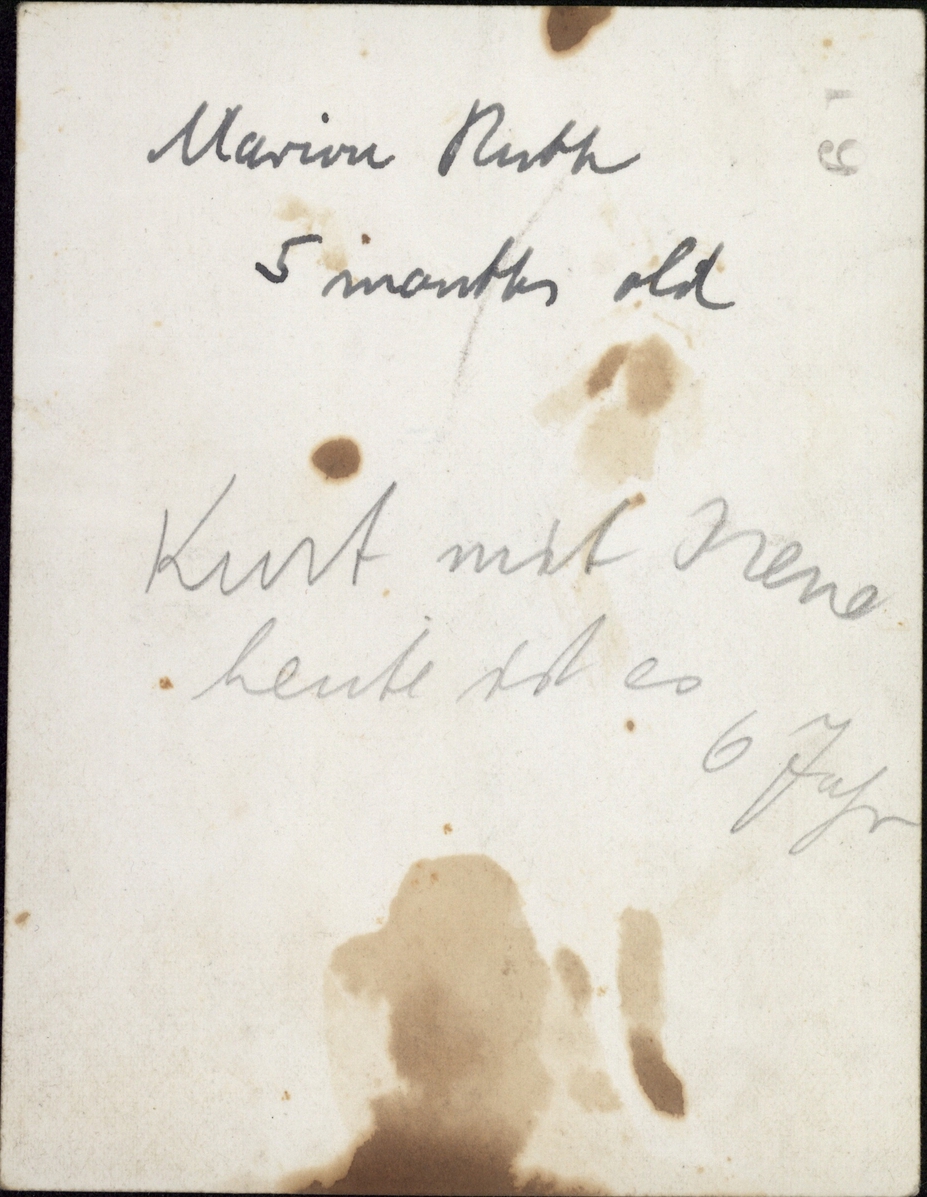 Marion Ruth
5 months old
Kurt mit Irene
heute ist es
6 Jahr
19